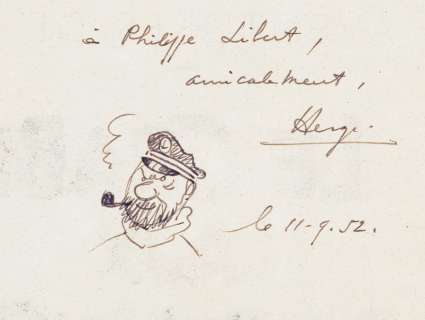 à Philippe Libert,
amicalement,
Hergé.
le 11-9.52.